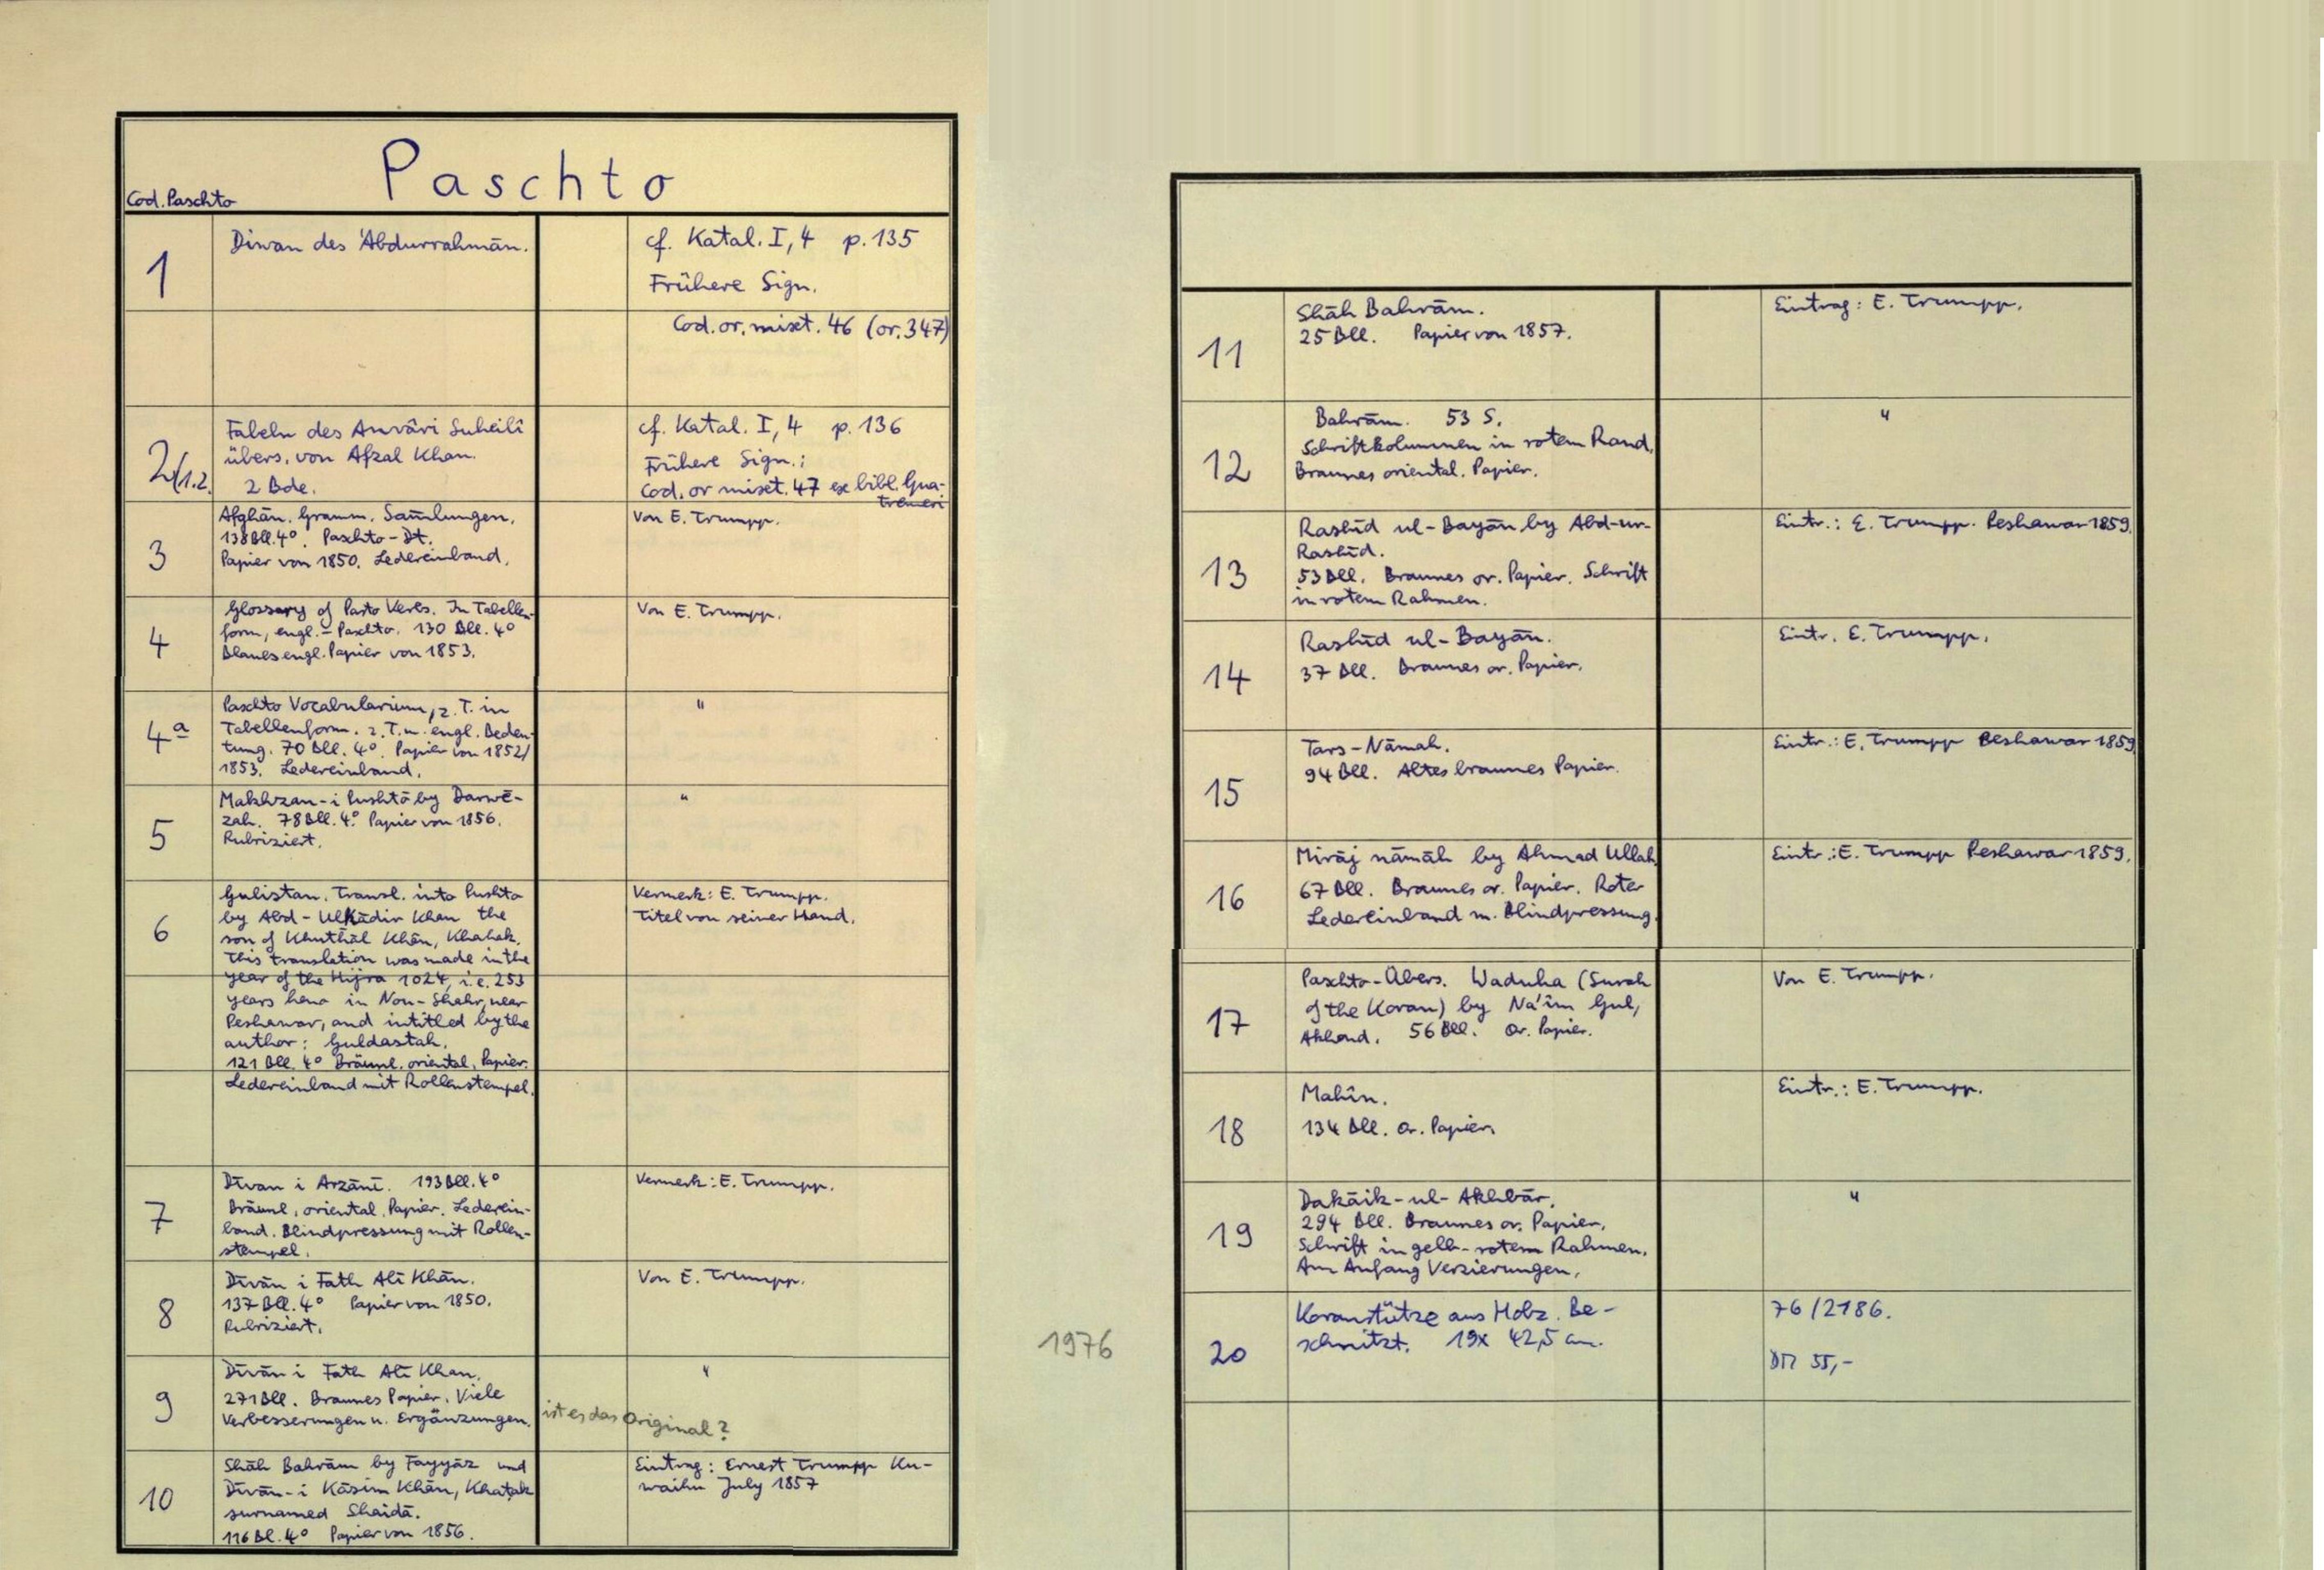 Paschto
Cod. Paschto
1
Diwan des 'Abdurrahmān.
cf. Katal. I, 4 p. 135
Frühere Sign.
Cod. or. mixt. 46 (or. 347)
2/1.2.
Fabeln des Anvâri Suheilî
übers. von Afzal Khan.
2 Bde.
cf. Katal. I, 4 p. 136
Frühere Sign.:
Cod. or mixt. 47 ex bibl. Qua-
tremeri
3
Afghān. Gramm. Sam̄lungen.
138 Bll. 4° Paschto-Dt.
Papier von 1850. Ledereinband.
Von E. Trumpp.
4
Glossary of Pasto Verbs. In Tabellen-
form, engl.-Paschto. 130 Bll. 4°
Blaues engl. Papier von 1853.
Von E. Trumpp.
4a
Paschto Vocabularium, z. T. in
Tabellenform. z. T. m. engl. Bedeu-
tung. 70 Bll. 4°. Papier von 1852/
1853. Ledereinband.
"
5
Makhzan-i Pushtō by Darwē-
zah. 78 Bll. 4° Papier von 1856.
Rubriziert.
"
6
Gulistan. Transl. into Pushto
by Abd-Ulkādir Khan the
son of Khuthāl Khān, Khatak.
This translation was made in the
year of the Hijra 1024, i.e. 253
years henc in Nou-Shahr, near
Peshawar, and intitled by the
author: Guldastah.
121 Bll. 4° Bräunl. oriental. Papier.
Ledereinband mit Rollenstempel.
Vermerk: E. Trumpp.
Titel von seiner Hand.
7
Dīvan i Arzānī. 193 Bll. 4°
Bräunl. oriental. Papier. Lederein-
band. Blindpressung mit Rollen-
stempel.
Vermerk: E. Trumpp.
8
Dīvān i Fath Alī Khān.
137 Bll. 4° Papier von 1850.
Rubriziert.
Von E. Trumpp.
9
Dīvān i Fath Alī Khan.
271 Bll. Braunes Papier. Viele
Verbesserungen u. Ergänzungen.
ist es das Original?
"
10
Shāh Bahrām by Fayyāz und
Dīvān-i Kāsim Khān, Khatak
surnamed Shaidā.
116 Bl. 4° Papier von 1856.
Eintrag: Ernest Trumpp
July 1857
11
Shāh Bahrām.
25 Bll. Papier von 1857.
Eintrag: E. Trumpp.
12
Bahrām. 53 S.
Schriftkolumnen in rotem Rand.
Braunes oriental. Papier.
"
13
Rashīd ul-Bayān by Abd-ur-
Rashīd.
53 Bll. Braunes or. Papier. Schrift
in rotem Rahmen.
Eintr.: E. Trumpp. Peshawar 1859.
14
Rashīd ul-Bayān.
37 Bll. Braunes or. Papier.
Eintr. E. Trumpp.
15
Tars-Nāmah.
94 Bll. Altes braunes Papier.
Eintr.: E. Trumpp Peshawar 1859
16
Mirāj nāmāh by Ahmad Ullah
67 Bll. Braunes or. Papier. Roter
Ledereinband m. Blindpressung.
Eintr.: E. Trumpp Peshawar 1859.
17
Paschto-Übers. Waduha (Surah
of the Koran) by Na'īm Gul,
Akhond. 56 Bll. Or. Papier.
Von E. Trumpp.
18
Mahīn.
134 Bll. Or. Papier.
Eintr.: E. Trumpp.
19
Dakāik-ul-Akhbār.
294 Bll. Braunes or. Papier.
Schrift in gelb-rotem Rahmen.
Am Anfang Verzierungen.
"
1976
20
Koranstütze aus Holz. Be-
schnitzt. 19x 42,5 cm.
76/2186.
DM 55,-